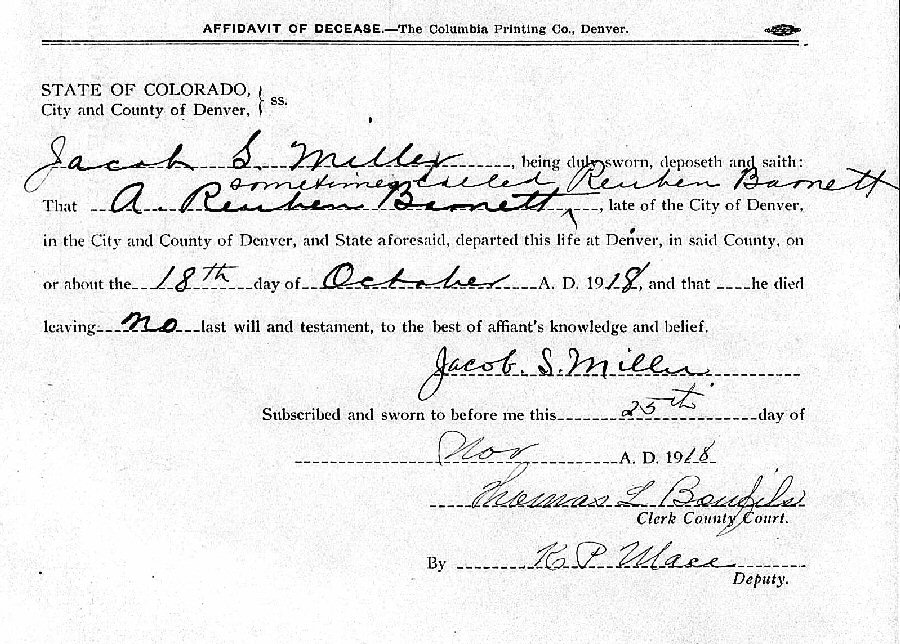 AFFIDAVIT OF DECEASE.—The Columbia Printing Co., Denver.
STATE OF COLORADO,
City and County of Denver, } ss.
Jacob S. Miller, being duly sworn, deposeth and saith:
sometimes called Reuben Barnett
That A. Reuben Barnett ‸, late of the City of Denver,
in the City and County of Denver, and State aforesaid, departed this life at Denver, in said County, on
or about the 18th day of October A. D. 1918, and that he died
leaving no last will and testament, to the best of affiant's knowledge and belief.
Jacob. S. Miller
Subscribed and sworn to before me this 25th day of
Nov A. D. 1918
Thomas L Bonfils
Clerk County Court.
By K P Mace
Deputy.